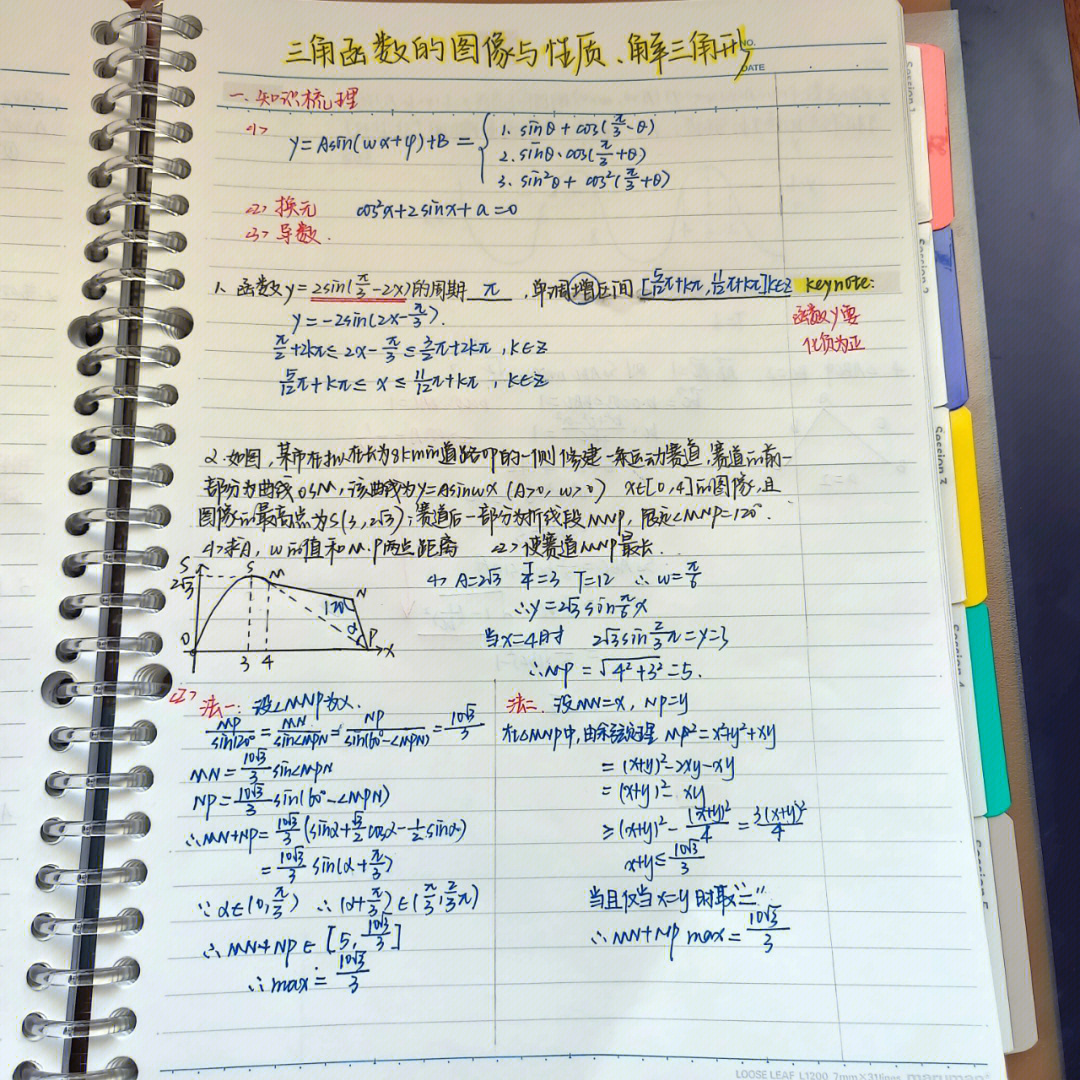 三角函数的图像与性质、解三角形
NO.
DATE
一、知识梳理
<1> y=Asin(wx+φ)+B = { 1. sinθ+cos(π/3-θ)
2. sinθ·cos(π/3+θ)
3. sin²θ+cos²(π/3+θ)
<2> 换元 cos²x+2sinx+a=0
<3> 导数.
1. 函数y=2sin(π/3-2x)的周期 π , 单调增区间 [5/12π+kπ, 11/12π+kπ]k∈Z keynote:
y=-2sin(2x-π/3).
函数y要
化负为正
π/2+2kπ≤2x-π/3≤3/2π+2kπ, k∈Z
5/12π+kπ≤x≤11/12π+kπ, k∈Z
2.如图,某市在拟在长为8km的道路OP的一侧修建一条运动赛道,赛道的前一
部分为曲线OSM,该曲线为y=Asinwx (A>0, w>0) x∈[0,4]的图像,且
图像的最高点为S(3,2√3);赛道后一部分为折线段MNP,限定∠MNP=120°.
<1>求A, w的值和M.P两点距离 <2>使赛道MNP最长.
S
2√3
S
M
N
120°
α
P
O
3
4
x
<1> A=2√3 T/4=3 T=12 ∴w=π/6
∴y=2√3sinπ/6x
当x=4时 2√3sin2/3π=y=3
∴MP=√4²+3²=5.
<2> 法一:设∠MNP为α.
MP/sin120°=MN/sin∠MPN=NP/sin(60°-∠MPN)=10√3/3
MN=10√3/3 sin∠MPN
NP=10√3/3 sin(60°-∠MPN)
∴MN+NP=10√3/3(sinα+√3/2cosα-1/2sinα)
=10√3/3 sin(α+π/3)
∵α∈(0,π/3) ∴(α+π/3)∈(π/3,2/3π)
∴MN+NP∈[5,10√3/3]
∴max=10√3/3
法二. 设MN=x, NP=y
在△MNP中,由余弦定理 MP²=x²+y²+xy
=(x+y)²-2xy-xy
=(x+y)²-xy
≥(x+y)²-(x+y)²/4=3(x+y)²/4
x+y≤10√3/3
当且仅当x=y时取"="
∴MN+NP max=10√3/3
LOOSE LEAF L1200 7mm×31lines maruman